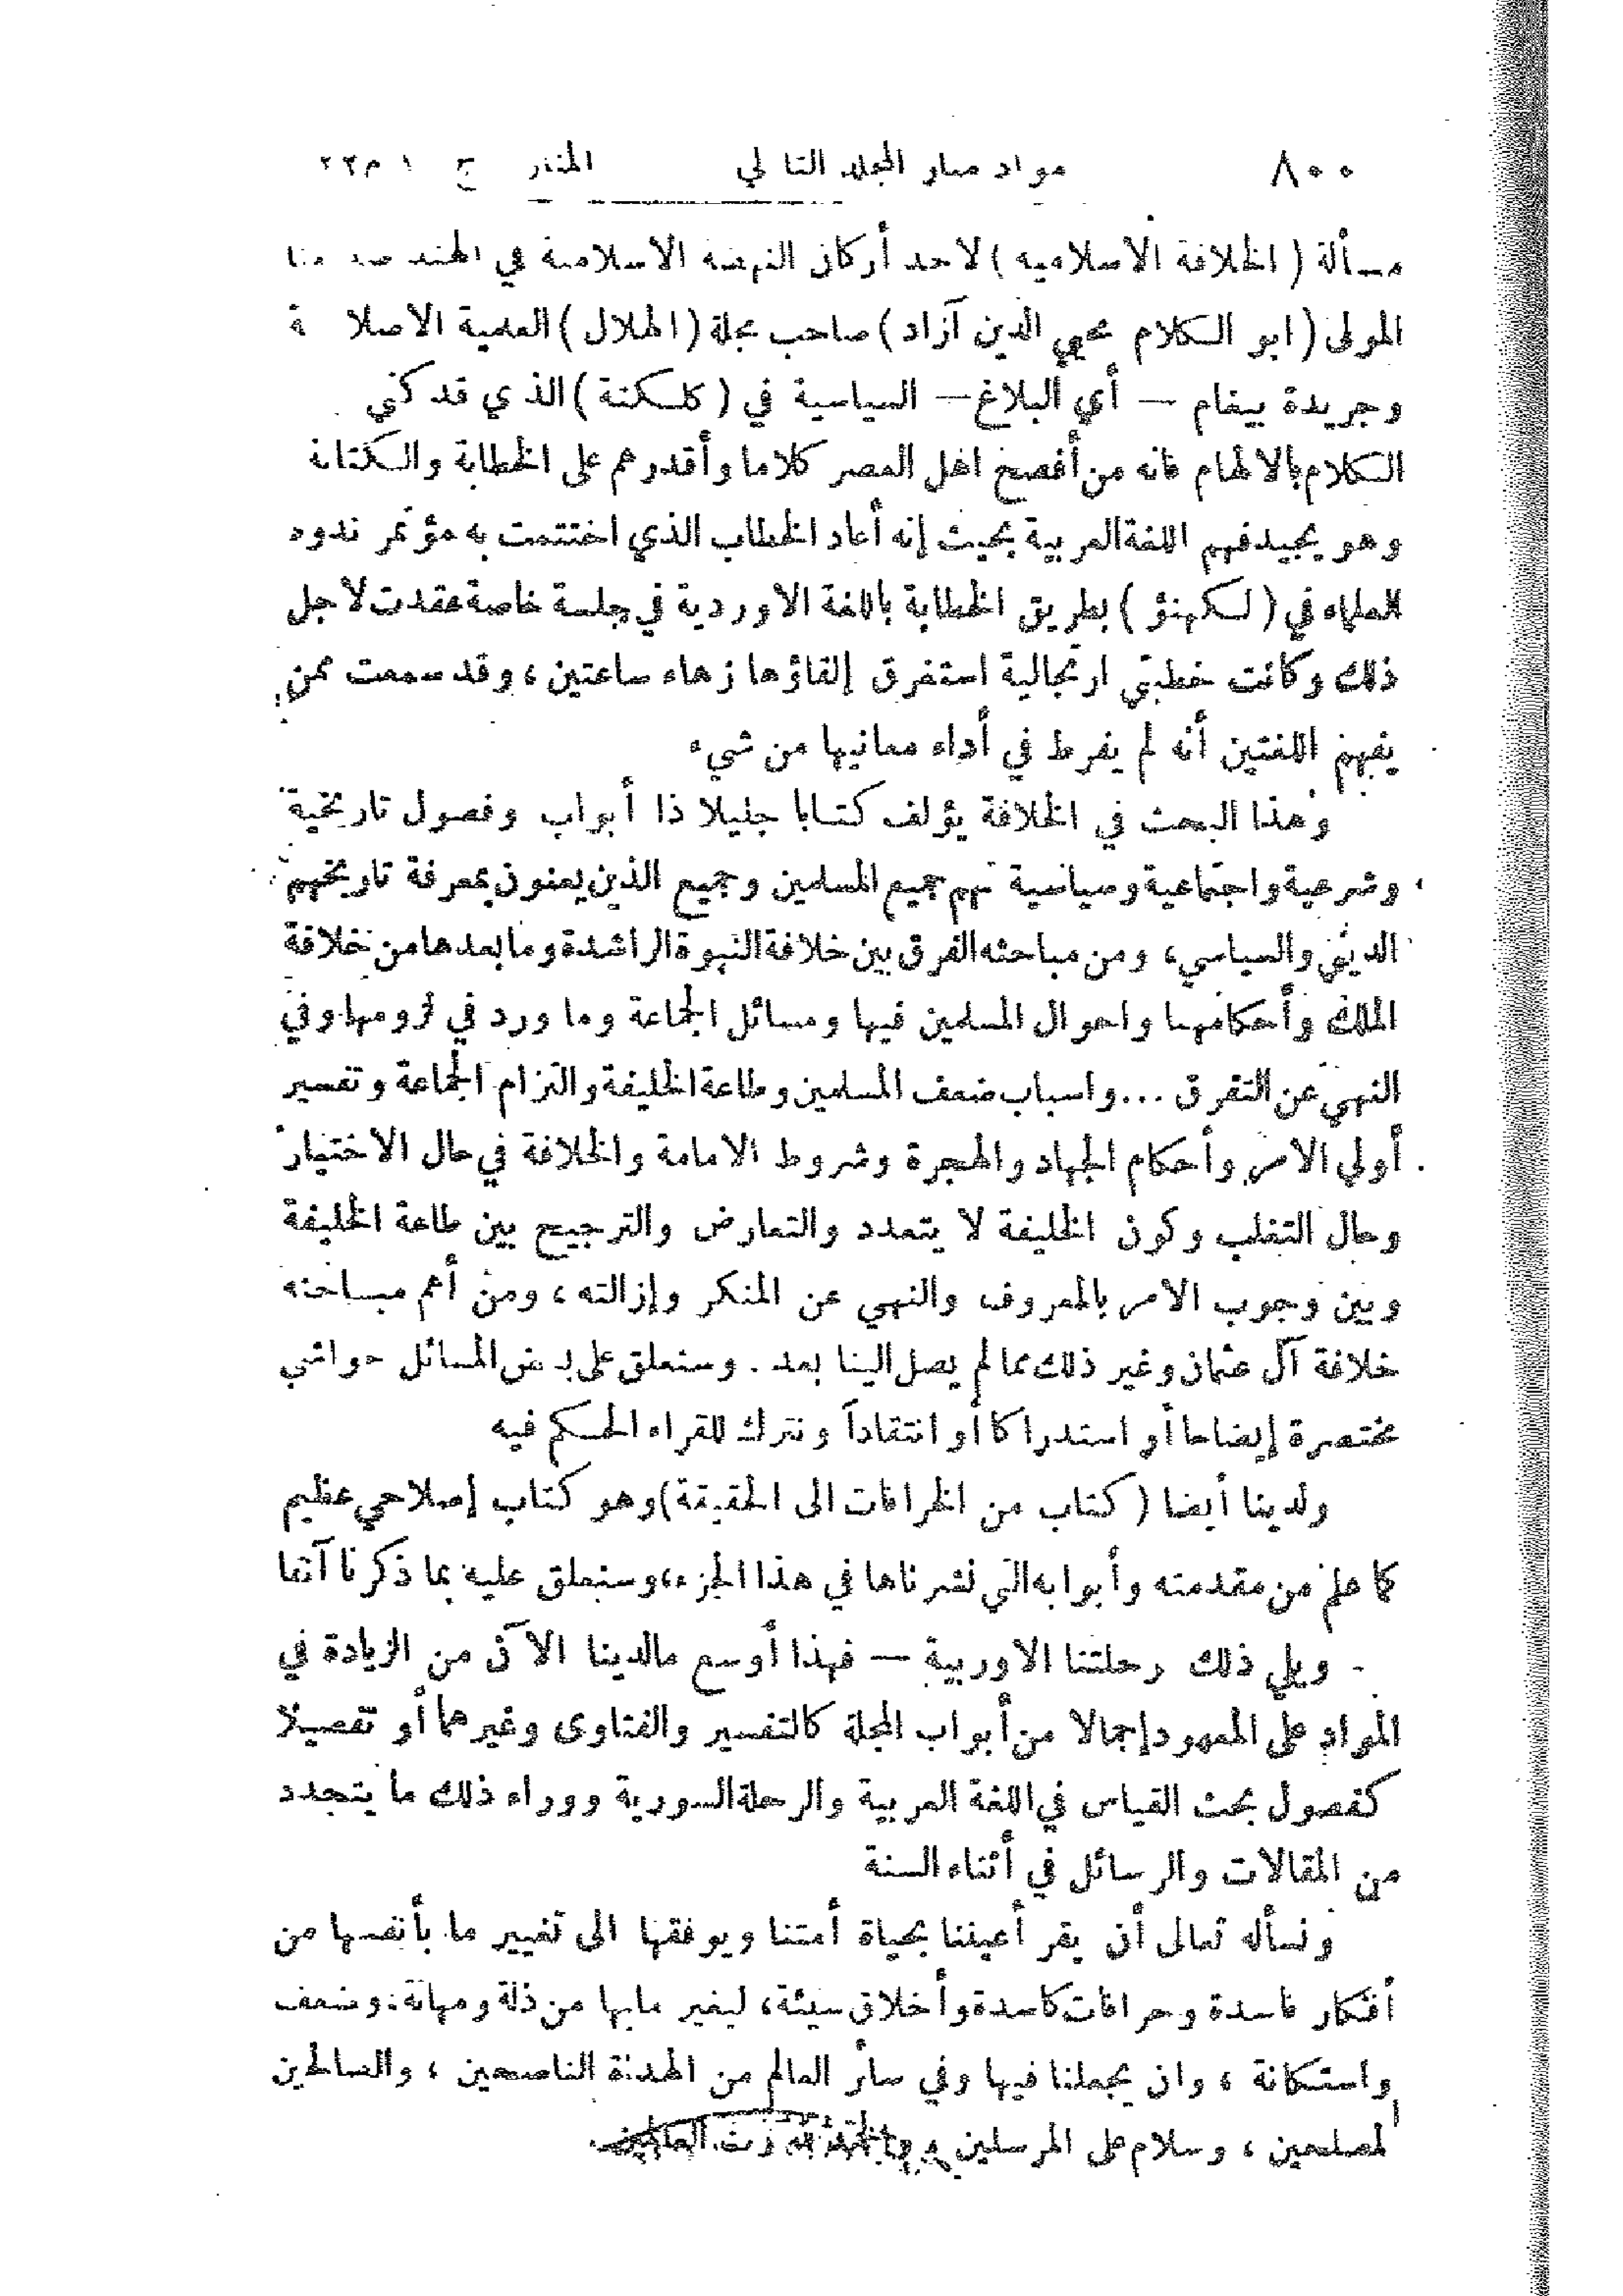 ٨٠٠ مواد منار المجلد التالي المنار ج ١ م٢٢
مسألة (الخلافة الاسلامية) لاحد أركان النهضة الاسلامية في الهند
المولى (ابو الكلام محيي الدين آزاد) صاحب مجلة (الهلال) العلمية
وجريدة بيغام — أي البلاغ — السياسية في (كلكتة) الذي قد كني
الكلام بالالهام فانه من أفصح اهل العصر كلاما وأقدرهم على الخطابة والكتابة
وهو يجيد فهم اللغة العربية بحيث إنه أعاد الخطاب الذي اختتمت به مؤتمر ندوة
العلماء في (لكهنؤ) بطريق الخطابة باللغة الاوردية في جلسة خاصة عقدت لاجل
ذلك وكانت خطبتي ارتجالية استغرق إلقاؤها زهاء ساعتين، وقد سمعت ممن
يفهم اللغتين أنه لم يفرط في أداء معانيها من شيء
وهذا البحث في الخلافة يؤلف كتابا جليلا ذا أبواب وفصول تاريخية
وشرعية واجتماعية وسياسية تهم جميع المسلمين وجميع الذين يعنون بمعرفة تاريخهم
الديني والسياسي، ومن مباحثه الفرق بين خلافة النبوة الراشدة وما بعدها من خلافة
الملك وأحكامهما واحوال المسلمين فيها ومسائل الجماعة وما ورد في لزومها وفي
النهي عن التفرق ... واسباب ضعف المسلمين وطاعة الخليفة والتزام الجماعة وتفسير
أولي الامر وأحكام الجهاد والهجرة وشروط الامامة والخلافة في حال الاختيار
وحال التغلب وكون الخليفة لا يتعدد والتعارض والترجيح بين طاعة الخليفة
وبين وجوب الامر بالمعروف والنهي عن المنكر وإزالته، ومن أهم مباحثه
خلافة آل عثمان وغير ذلك مما لم يصل الينا بعد . وسنعلق على بعض المسائل حواشي
مختصرة إيضاحا أو استدراكا أو انتقاداً ونترك للقراء الحكم فيه
ولدينا أيضا (كتاب من الخرافات الى الحقيقة) وهو كتاب إصلاحي عظيم
كما علم من مقدمته وأبوابه التي نشرناها في هذا الجزء، وسنعلق عليه بما ذكرنا آنفا
ويلي ذلك رحلتنا الاوربية — فهذا أوسع مالدينا الآن من الزيادة في
المواد على المعهود إجمالا من أبواب المجلة كالتفسير والفتاوى وغيرهما أو تفصيلا
كفصول بحث القياس في اللغة العربية والرحلة السورية ووراء ذلك ما يتجدد
من المقالات والرسائل في أثناء السنة
ونسأله تعالى أن يقر أعيننا بحياة أمتنا ويوفقها الى تغيير ما بأنفسها من
أفكار فاسدة وخرافات كاسدة وأخلاق سيئة، ليغير مابها من ذلة ومهانة وضعف
واستكانة، وان يجعلنا فيها وفي سائر العالم من الهداة الناصحين، والصالحين
المصلحين، وسلام على المرسلين، والحمد لله رب العالمين.